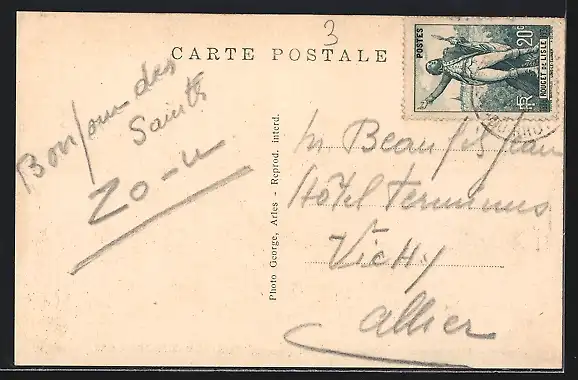 3
CARTE POSTALE
POSTES
20c
ROUGET DE LISLE
RF
Bonjour des
Saints
Photo George, Arles - Reprod. interd.
Mr Beaufils Jean
Hôtel Terminus
Vichy
Allier